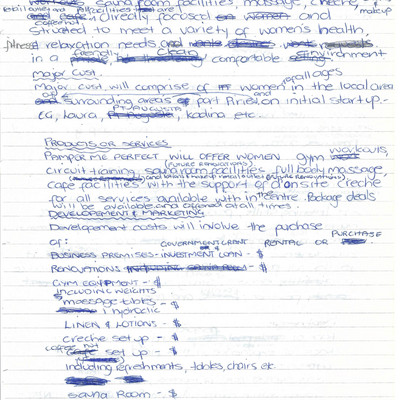 sauna room facilities, massage, creche,
retail outlet and All facilities are makeup
coffee hut directly focused on women and
Situated to meet a variety of women's health,
fitness relaxation needs and
in a friendly comfortable environment
Major Cust. of all ages
Major Cust. will comprise of women in the local area
and surrounding areas of port Pirie, on initial start up -
Laura, Pt Augusta, Kadina etc
PRODUCTS OR SERVICES
PAMPER ME PERFECT WILL OFFER WOMEN Gym workouts,
(FUTURE RENOVATIONS)
circuit training, sauna room facilities, full body massage,
cafe facilities with the support of an onsite creche
for all services available with in the centre. Package deals
will be available and offered at all times.
DEVELOPEMENT & MARKETING
Developement costs will involve the puchase
of: GOVERNMENT GRANT RENTAL OR PURCHASE
BUSINESS PREMISES - INVESTMENT LOAN - $
RENOVATIONS INCLUDING SAUNA ROOM - $
GYM EQUIPMENT - $
INCLUDING WEIGHTS
massage tables - $
1 hydrolic
LINEN & LOTIONS - $
creche set up - $
coffee hut
cafe set up - $
including refreshments, tables, chairs etc
sauna Room - $